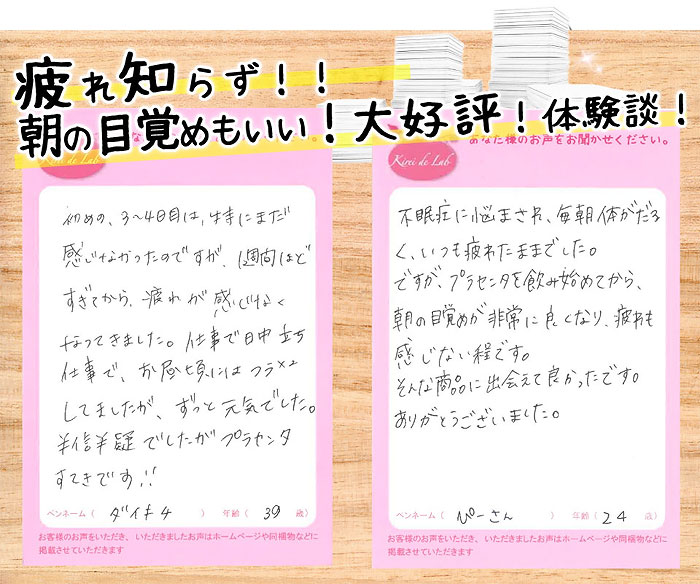 疲れ知らず！！
朝の目覚めもいい！大好評！体験談！
Kirei de Lab
初めの、3〜4日目は、特にまだ
感じなかったのですが、1週間ほど
すぎてから、疲れが感じなく
なってきました。仕事で日中立ち
仕事で、お昼頃にはフラ××
してましたが、ずっと元気でした。
半信半疑でしたがプラセンタ
すてきです!!
ペンネーム（ ダイキチ ） 年齢（ 39 歳）
お客様のお声をいただき、いただきましたお声はホームページや同梱物などに
掲載させていただきます
あなた様のお声をお聞かせください。
Kirei de Lab
不眠症に悩まされ、毎朝体がだる
く、いつも疲れたままでした。
ですが、プラセンタを飲み始めてから、
朝の目覚めが非常に良くなり、疲れも
感じない程です。
そんな商品に出会えて良かったです。
ありがとうございました。
ペンネーム（ ぴーさん ） 年齢（ 24 歳）
お客様のお声をいただき、いただきましたお声はホームページや同梱物などに
掲載させていただきます